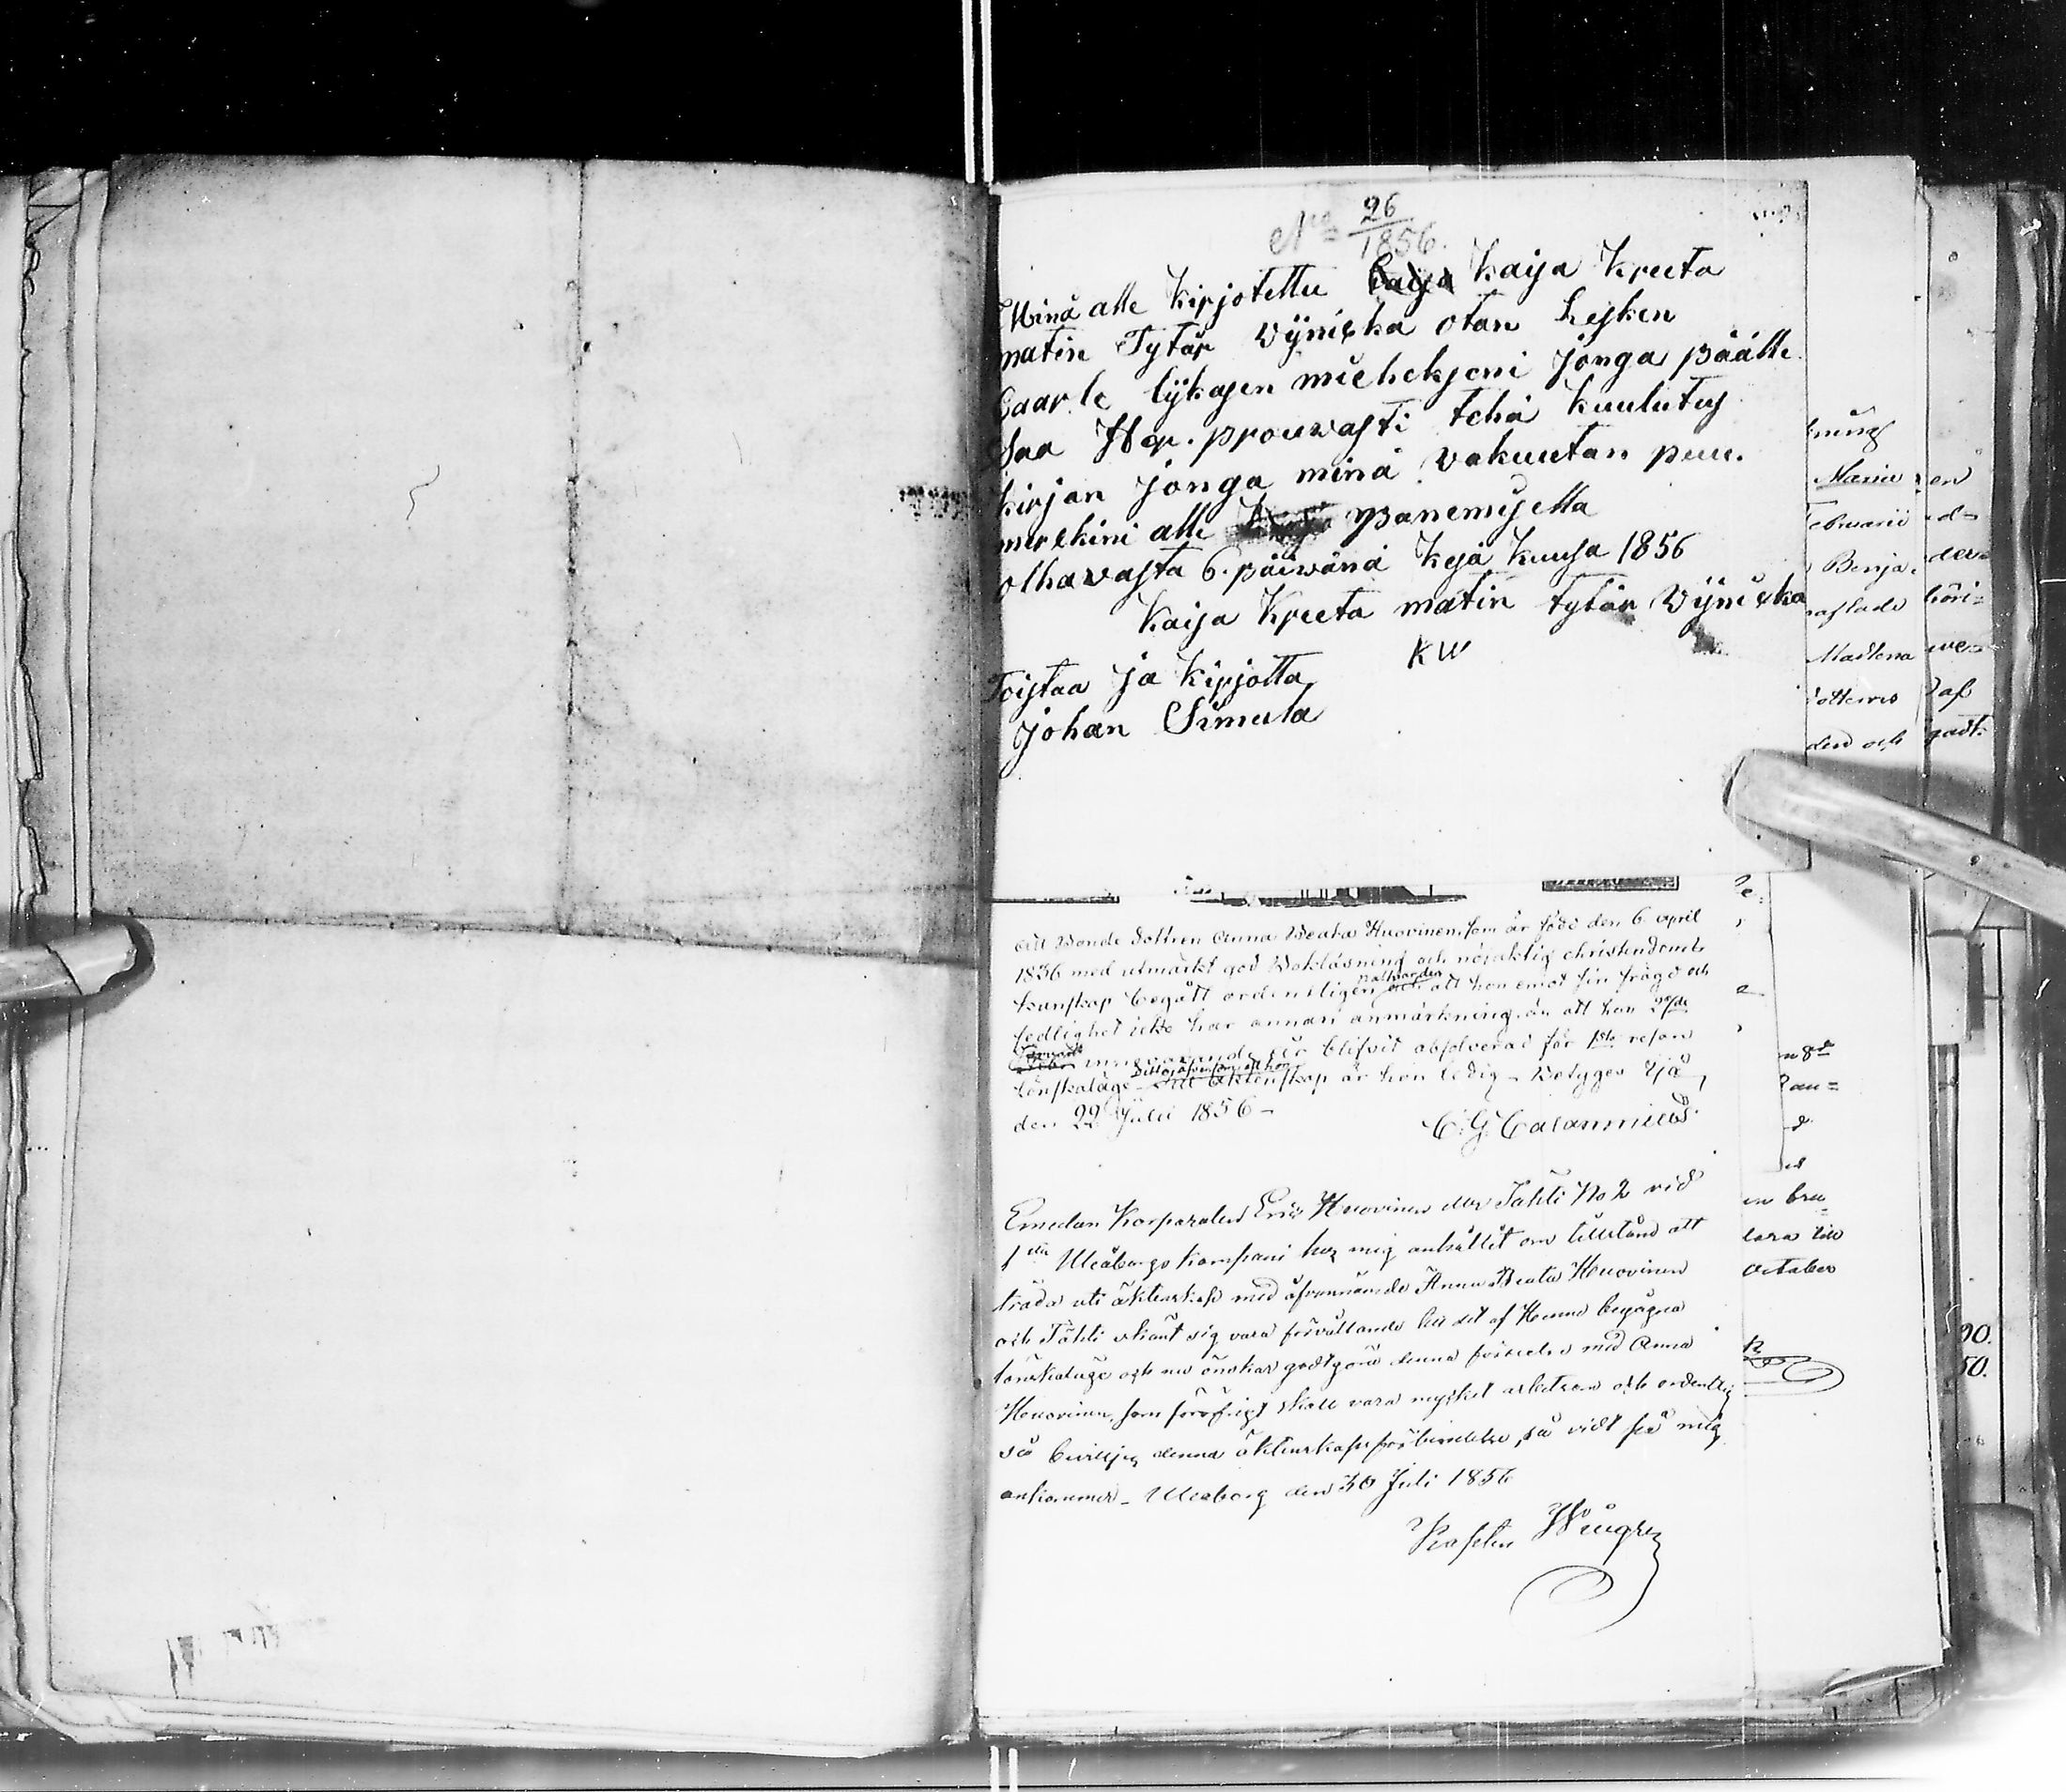 No 26
1856.
Minä alle Kirjotettu Kaisa Kreeta
matin Tytär Wÿnikka otan Lesken
Caarle lÿkasen miehekseni jonga päälle
Saa Her. prouwasti tehä kuulutus
kirjan jonga minä vakuutan puu.
merckini alle panemisella
olhavasta 6. päiwänä kesä kuusa 1856
Kaisa Kreeta matin tytär Wÿnicka
KW
Toistaa ja Kirjotta
Johan Simula
Att Bonde dottren Anna Beata Huovinen, som är född den 6 april
1836 med utmärkt god Bokläsning och nöjaktig christendoms
kunskap begått ordentligen nattvarden att hon emot sin frägd och
sedlighet icke har annan anmärkning än att hon
innevarande år blifvit absolverad för 1sta resan
lönskaläge äktenskap är hon ledig _ Betygar Ijå
den 22 Julii 1856 _
C. G. Calamnius
Emedan Korporalen Eric Huovinen eller Tähti No 2 vid
1sta Uleåborgs Kompani hos mig anhållit om tillstånd att
träda uti äktenskap med åfvannämde Anna Beata Huovinen
och Tähti skänt sig vara förvållande till det af Henne begågna
lönskaläge och nu önskar godtgöra denna förseelse med Anna
Huovinen, som föröfrigt skall vara mycket arbetsam och ordentlig
så bevilljas denna äktenskaps förbindelse, så vidt på mig
ankommer _ Uleåborg den 30 Juli 1856
Kapten
Maria
Februarii
Benja
Madlena
den och
en bru
lara till
October
90.
50.